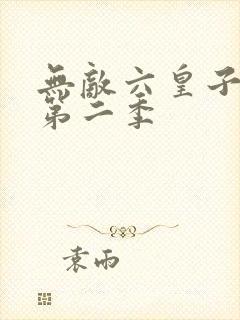 無敵六皇子
第二季
袁雨